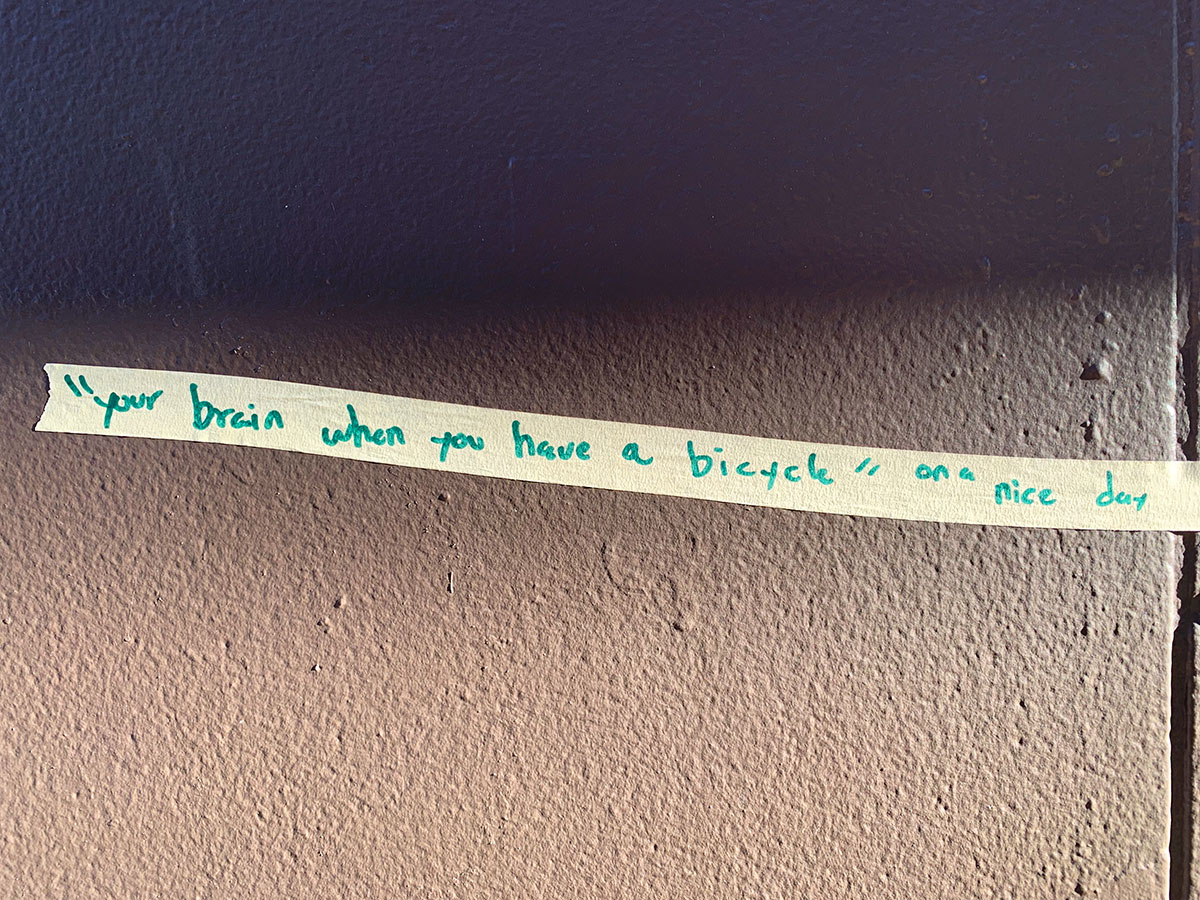 "your brain when you have a bicycle" on a nice day